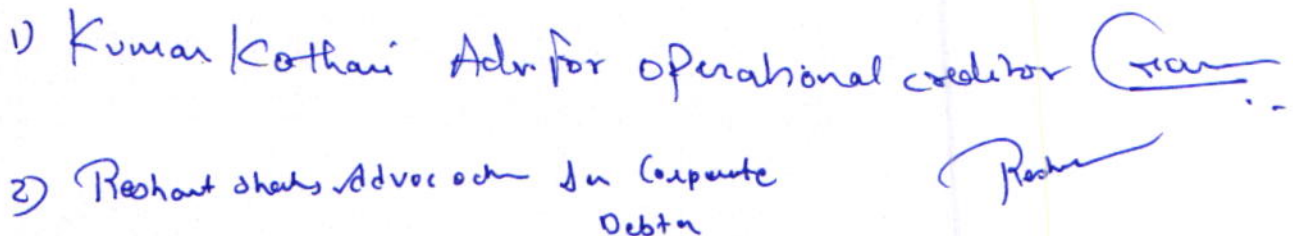 1) Kumar Kothari Adv. for operational creditor
2) Advocate for Corporate
Debtor